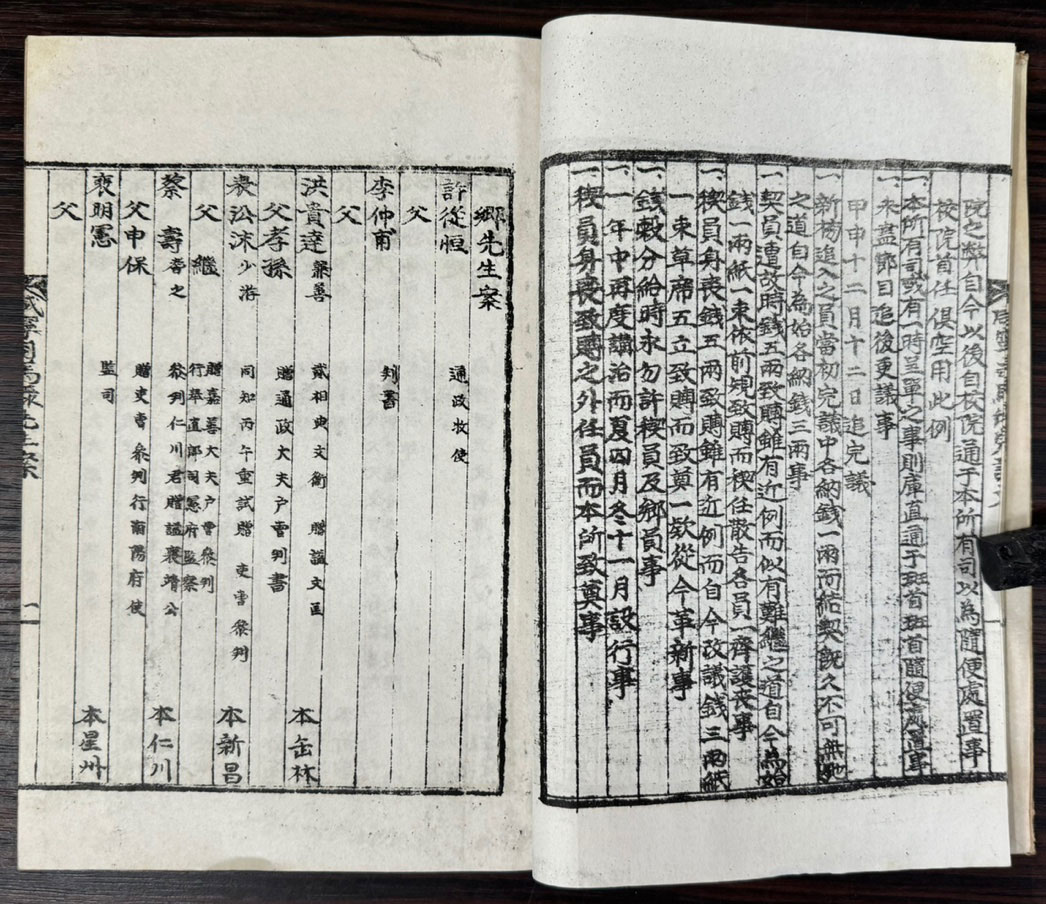 院之弊自今以後自校院通于本所有司以為隨便處置事
校院首任俱空用此例
一本所有司或有一時並單之事則庫直通于班首班首隨便處置事
一未盡節目追後更議事
甲申十二月十二日追完議
一新榜追入之員當初完議中各納錢一兩而結契旣久不可無
之道自今為始各納錢三兩事
一契員遭故時錢五兩致賻雖有近例而似有難繼之道自今為始
錢一兩紙一束依前規致賻而稧任散告各員一齊護喪事
一稧員身喪錢五兩致賻雖有近例而自今改議錢三兩紙
一束草席五立致賻而致奠一欵從今革新事
一錢穀分給時永勿許稧員及鄉員事
一一年中再度講洽而夏四月冬十一月設行事
一稧員身喪致賻之外任員而本所致奠事
鄉先生案
許從恒 通政牧使
父
李仲甫 判書
父
洪貴達 兼善 貳相典文衡 贈謚文匡 本缶林
父孝孫 贈通政大夫戶曹判書
表沿沫 少游 同知丙午重試贈吏曹參判 本新昌
父繼 贈嘉善大夫戶曹參判行奉直郎司憲府監察
蔡壽 耆之 參判仁川君贈謚襄靖公 本仁川
父申保 贈吏曹參判行南陽府使
裵明憲 監司 本星州
父
先生案
一